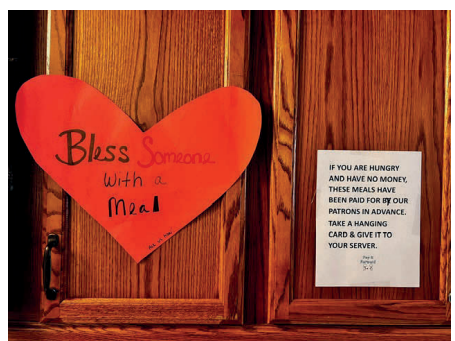 Bless Someone
With a
Meal
IF YOU ARE HUNGRY
AND HAVE NO MONEY,
THESE MEALS HAVE
BEEN PAID FOR BY OUR
PATRONS IN ADVANCE.
TAKE A HANGING
CARD & GIVE IT TO
YOUR SERVER.
Pay it
Forward